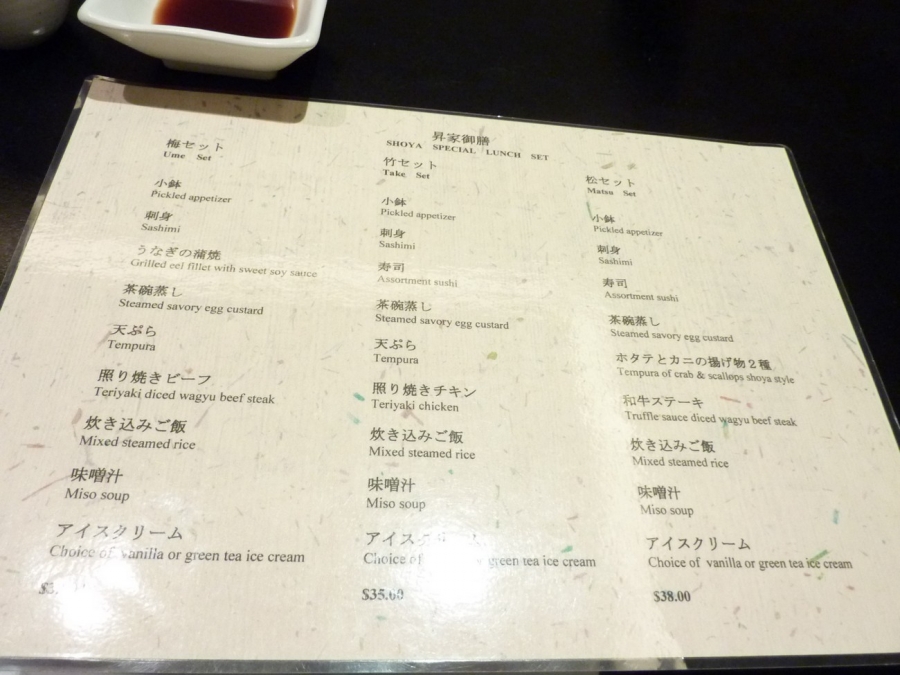 昇家御膳
SHOYA SPECIAL LUNCH SET
梅セット
Ume Set
小鉢
Pickled appetizer
刺身
Sashimi
うなぎの蒲焼
Grilled eel fillet with sweet soy sauce
茶碗蒸し
Steamed savory egg custard
天ぷら
Tempura
照り焼きビーフ
Teriyaki diced wagyu beef steak
炊き込みご飯
Mixed steamed rice
味噌汁
Miso soup
アイスクリーム
Choice of vanilla or green tea ice cream
竹セット
Take Set
小鉢
Pickled appetizer
刺身
Sashimi
寿司
Assortment sushi
茶碗蒸し
Steamed savory egg custard
天ぷら
Tempura
照り焼きチキン
Teriyaki chicken
炊き込みご飯
Mixed steamed rice
味噌汁
Miso soup
アイスクリーム
Choice of green tea ice cream
$35.00
松セット
Matsu Set
小鉢
Pickled appetizer
刺身
Sashimi
寿司
Assortment sushi
茶碗蒸し
Steamed savory egg custard
ホタテとカニの揚げ物2種
Tempura of crab & scallops shoya style
和牛ステーキ
Truffle sauce diced wagyu beef steak
炊き込みご飯
Mixed steamed rice
味噌汁
Miso soup
アイスクリーム
Choice of vanilla or green tea ice cream
$38.00